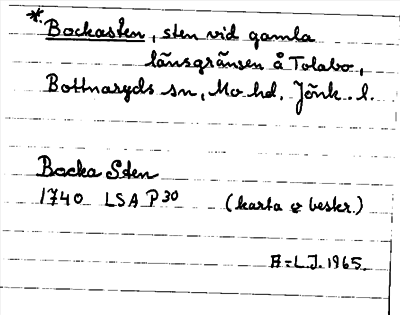 * Backasten, sten vid gamla
länsgränsen å Tolabo,
Bottnaryds sn, Mo hd, Jönk. l.
Backa Sten
1740 LSA P30 (karta o beskr.)
B-L.J. 1965.